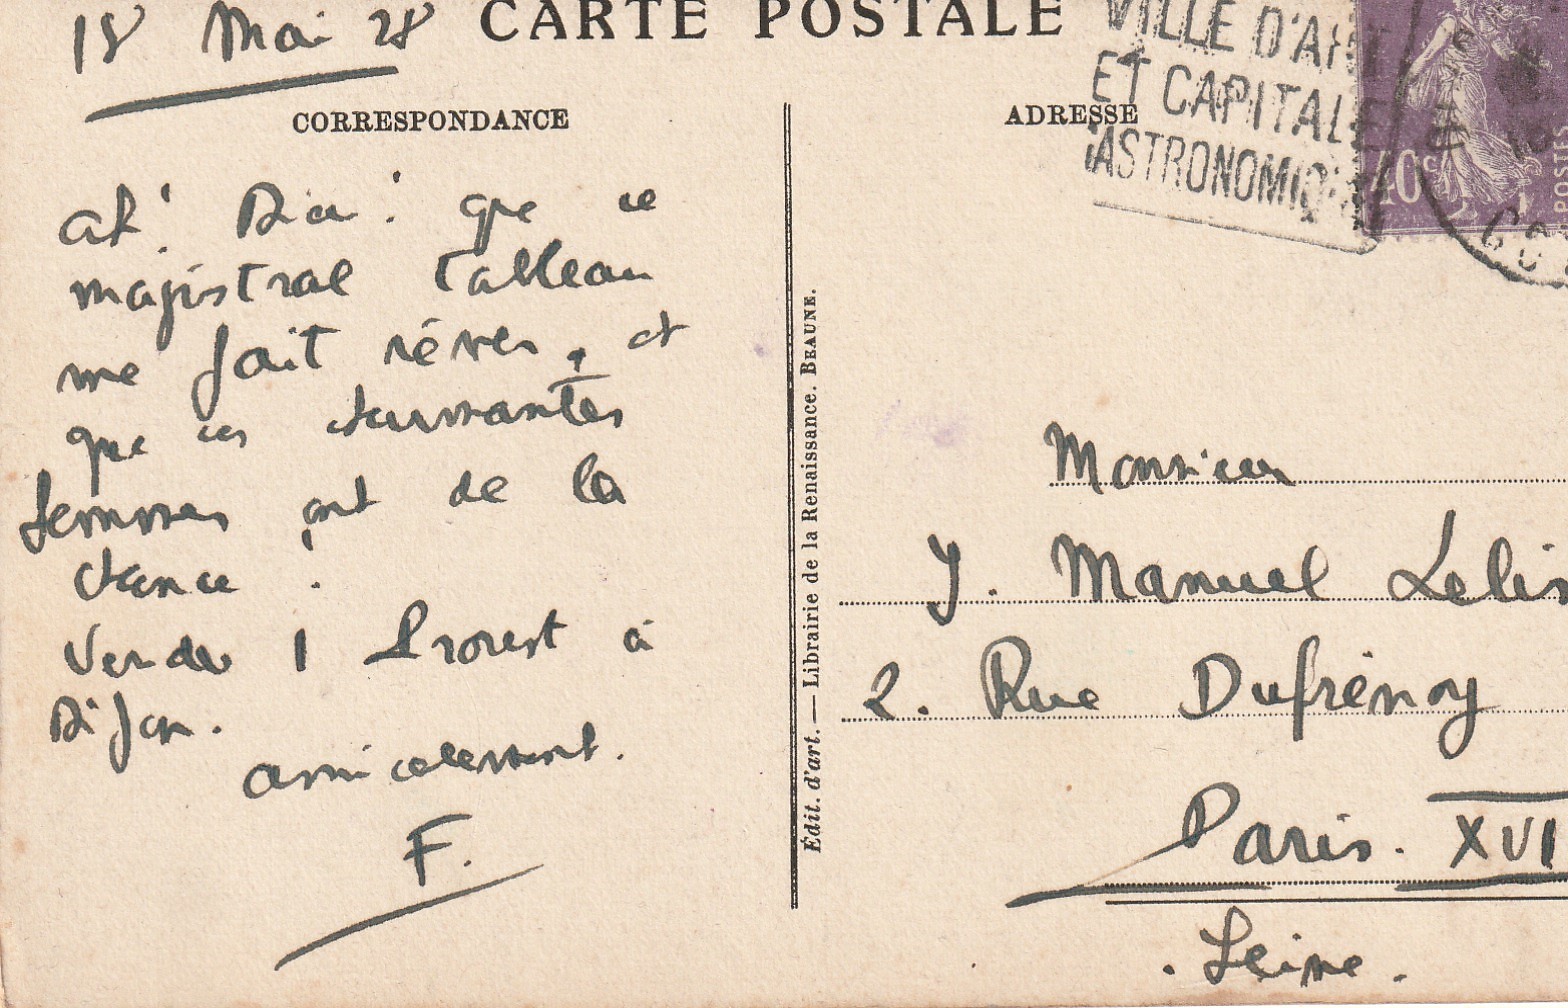 18 Mai 28
CARTE POSTALE
CORRESPONDANCE
ah! Dieu! que ce
magistral tableau
me fait rêver, et
que ces charmantes
femmes ont de la
chance!
Vendu 1 Proust à
Dijon.
amicalement.
F.
Édit. d'art. — Librairie de la Renaissance. BEAUNE.
VILLE D'AR
ET CAPITALE
GASTRONOMIQUE
ADRESSE
40c
POSTES
Monsieur
Y. Manuel Lelis
2. Rue Dufrénoy
Paris. XVI
. Seine.